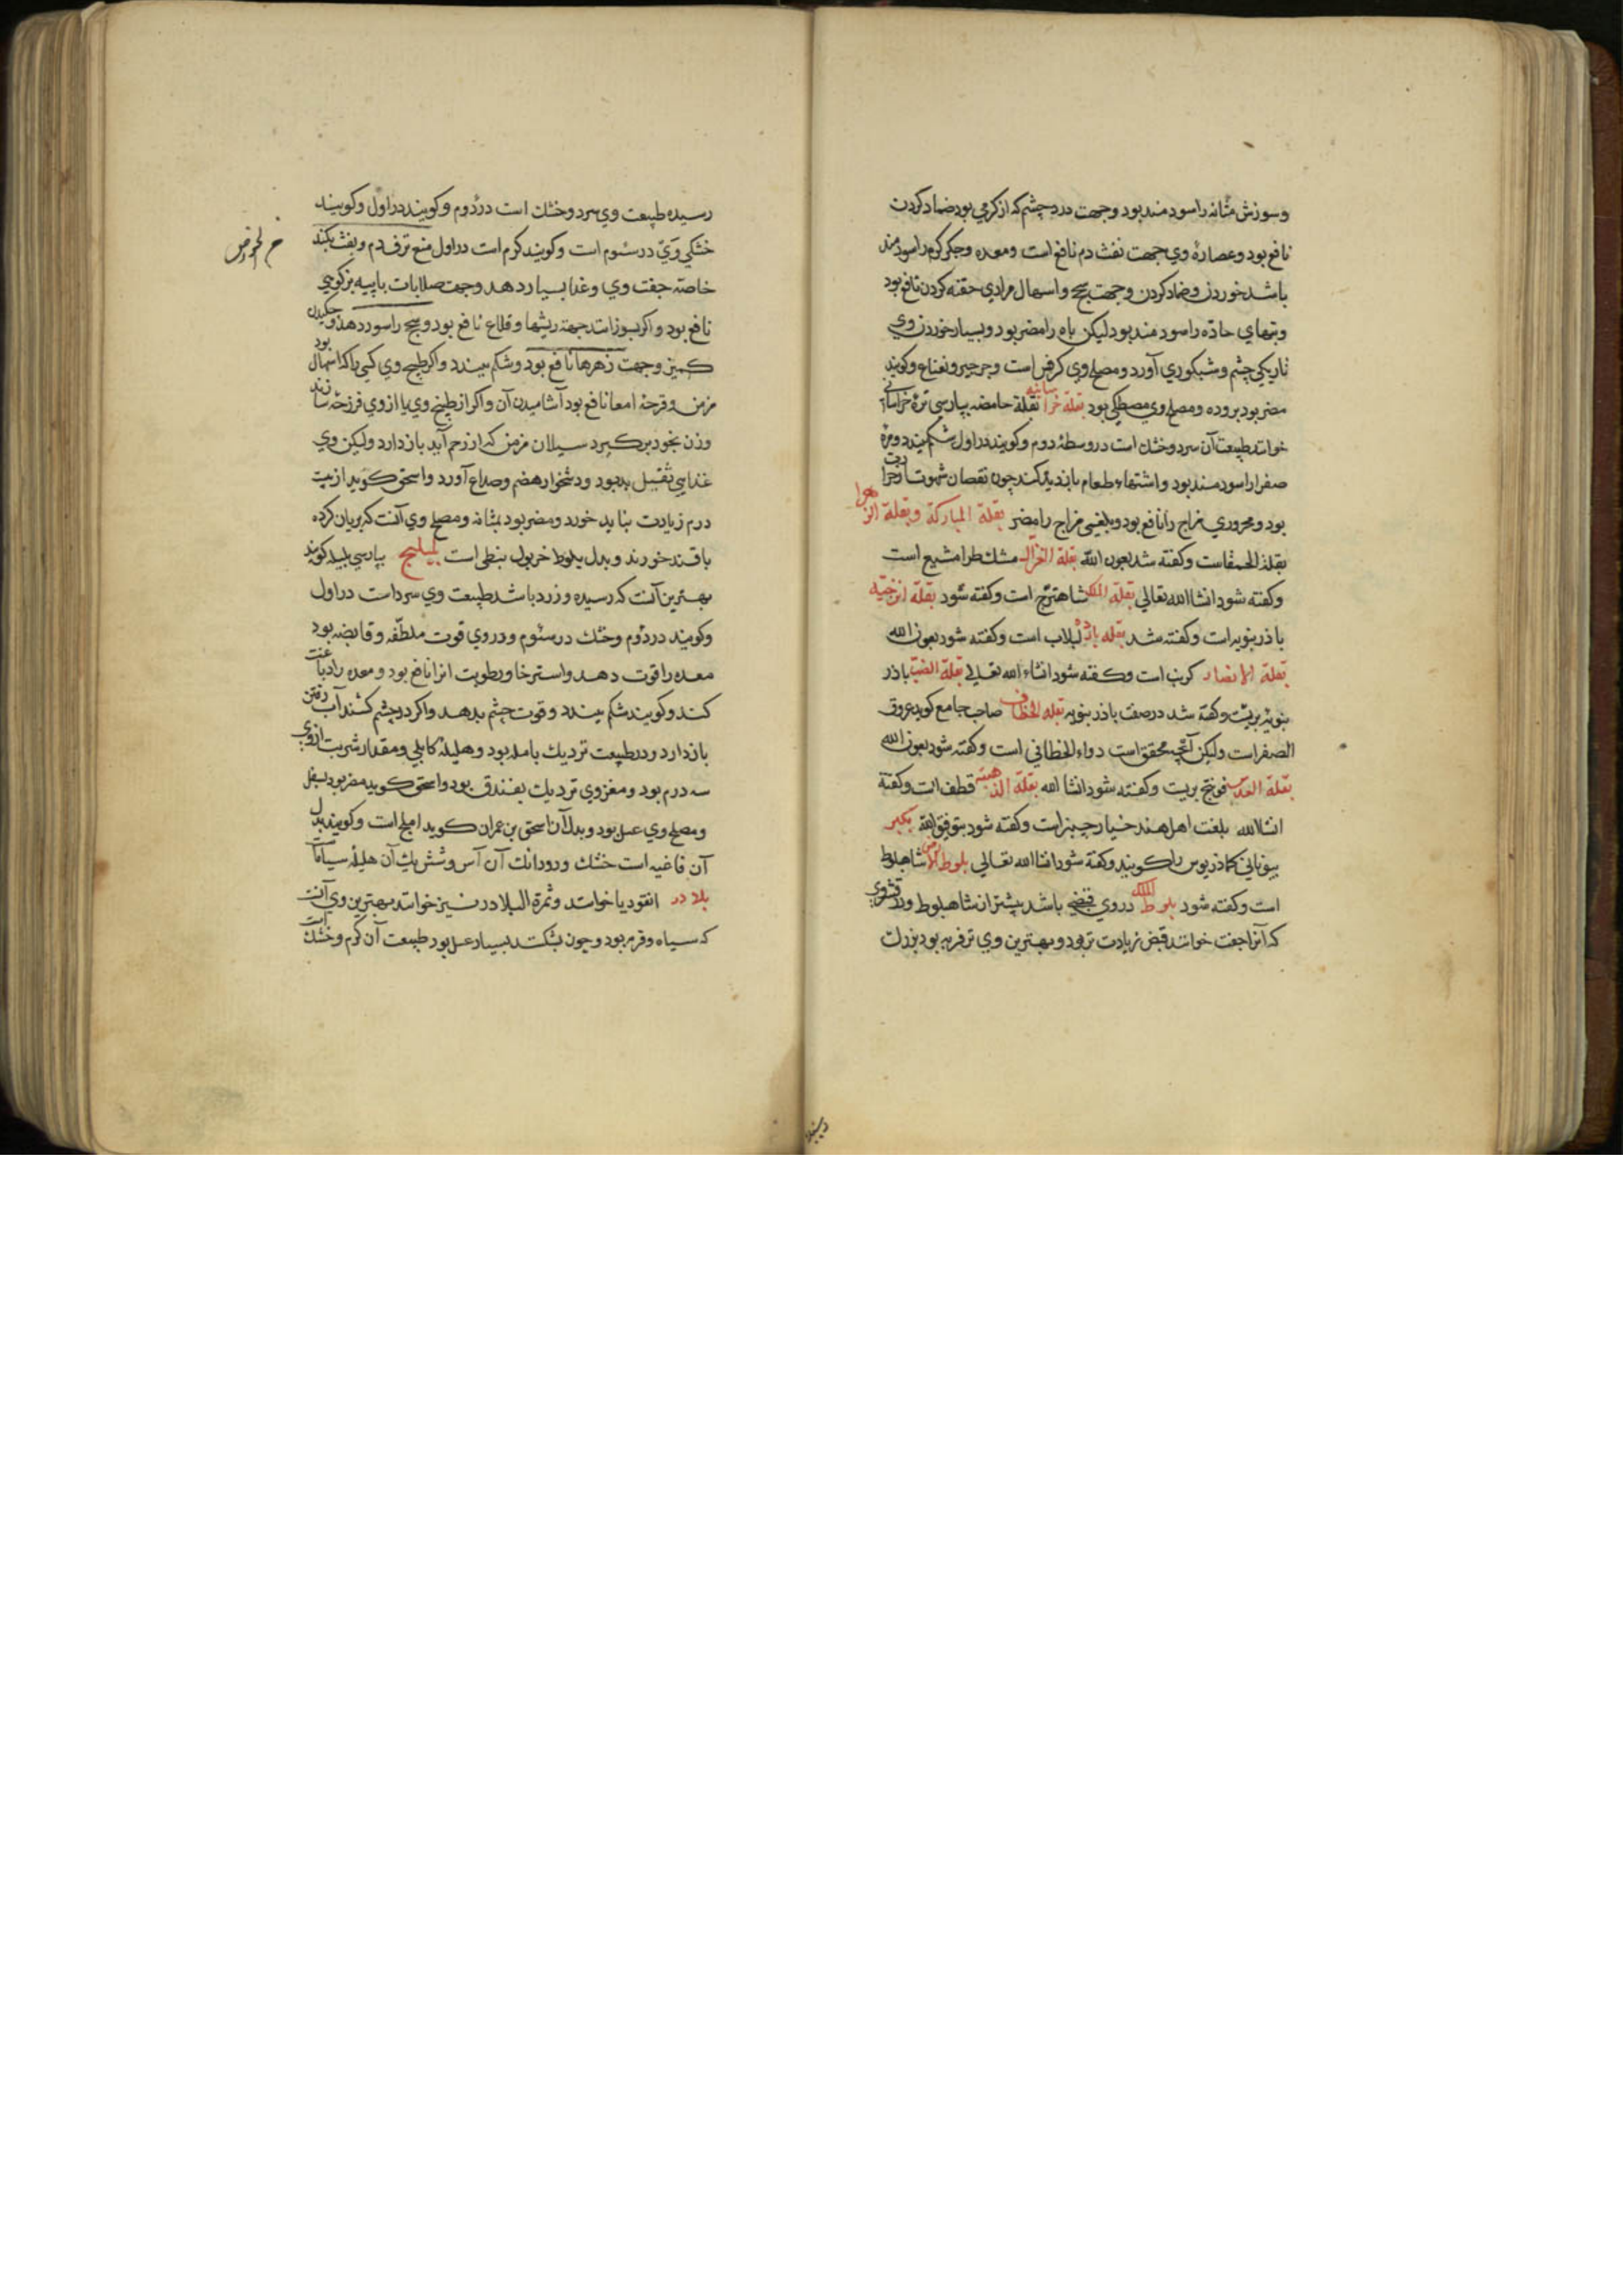 و سوزش مثانه را سودمند بود و جهت درد چشم که از کرمی بود ضماد کردن
نافع بود و عصارۀ وی جهت نفث دم نافع است و معده و جکر کرم را سودمند
باشد خوردن و ضماد کردن و جهت سحج و اسهال مراری حقنه کردن نافع بود
و تبهای حاده را سودمند بود لیکن باه را مضر بود و بسیار خوردن وی
تاریکی چشم و شبکوری آورد و مصلح وی کرفس است و جرجیر و نعناع و کویند
مضر بود بروده و مصلح وی مصطکی بود بقلة خراسانیه بقلة حامضه بپارسی ترۀ خراسانی
خوانند طبیعت آن سرد و خشک است در وسطۀ دوم و کویند در اول شکم ببندد و مرۀ
صفرا را سودمند بود و اشتهاء طعام باز دید کند چون نقصان شهوت از حرارت
بود و محروری مزاج را نافع بود و بلغمی مزاج را مضر بقلة المبارکة و بقلة الزهرا
بقلة الحمقاست و کفته شد بعون الله بقلة الغزال مشکطرامشیع است
و کفته شود انشا الله تعالی بقلة الملک شاهترج است و کفته شود بقلة اترجیه
باذرنبویه است و کفته شد بقله بارده لبلاب است و کفته شود بعون الله
بقلة الانصار کرنب است و کفته شود انشاء الله تعالی بقلة الضب باذر
نبویۀ بریست و کفته شد در صفت باذرنبویه بقلة الخطاف صاحب جامع کوید عروق
الصفر است ولیکن آنچه محقق است دواء الخطافی است و کفته شود بعون الله
بقلة العدس فوتنج بریت و کفته شود انشا الله بقلة الذهبیه قطف است و کفتة
انشا الله بلغت اهل هند خیار چنبر است و کفته شود بتوفیق الله
بیونانی کماذریوس را کویند و کفته شود انشا الله تعالی بلوط الارض شاهبلوط
است و کفته شود بلوط الملک در وی قبض باشد بیشتر از شاهبلوط و در قشر وی
که آنرا جفت خوانند قبض زیادت تر بود و بهترین وی تر فربه بود بزرک
رسیده طبیعت وی سرد و خشک است در دوم و کویند در اول و کویند
خشکی وی در سئوم است و کویند کرم است در اول منع نزف دم و نفث بکند
خاصه جفت وی و غذا بسیار دهد و جهت صلابات با پیه بز کوهی
نافع بود و اکر بسوزانند جهة ریشها و قلاع نافع بود و سحج را سود دهد و چکیدن
کمیز و جهت زهرها نافع بود و شکم ببندد و اکر طبیخ وی کسی را که اسهال بود
مزمن و قرحۀ امعا نافع بود آشامیدن آن و اکر از طبیخ وی یا از وی فرزجه سازند
و زن بخود برکیرد سیلان مزمن که از رحم آید باز دارد ولیکن وی
غذایی ثقیل بد بود و دشخوار هضم و صداع آورد و اسحق کوید از بیست
درم زیادت نباید خورد و مضر بود بمثانه و مصلح وی آنست که بریان کرده
با قند خورند و بدل بلوط خرنوب نبطی است بلیلج بپارسی بلیله کویند
بهترین آنست که رسیده و زرد باشد طبیعت وی سرد است در اول
و کویند در دوم و خشک در سئوم و در وی قوت ملطفه و قابضه بود
معده را قوت دهد و استرخا و رطوبت آنرا نافع بود و معده را دباغت
کند و کویند شکم ببندد و قوت چشم بدهد و اکر در چشم کشند آب رفتن
باز دارد و در طبیعت نزدیک بامله بود و هلیلۀ کابلی و مقدار شربت از وی
سه درم بود و مغز وی نزدیک بفندق بود و اسحق کوید مضر بود بسفل
و مصلح وی عسل بود و بدل آن اسحق بن عمران کوید املج است و کویند بدل
آن فاغیه است خشک و دو دانک آن آس و شش یک آن هلیله سیاه
بلادر انقردیا خوانند و ثمرة البلادر نیز خوانند بهترین وی آنست
که سیاه و فربه بود و چون بشکنند بسیار عسل بود طبیعت آن کرم و خشک است